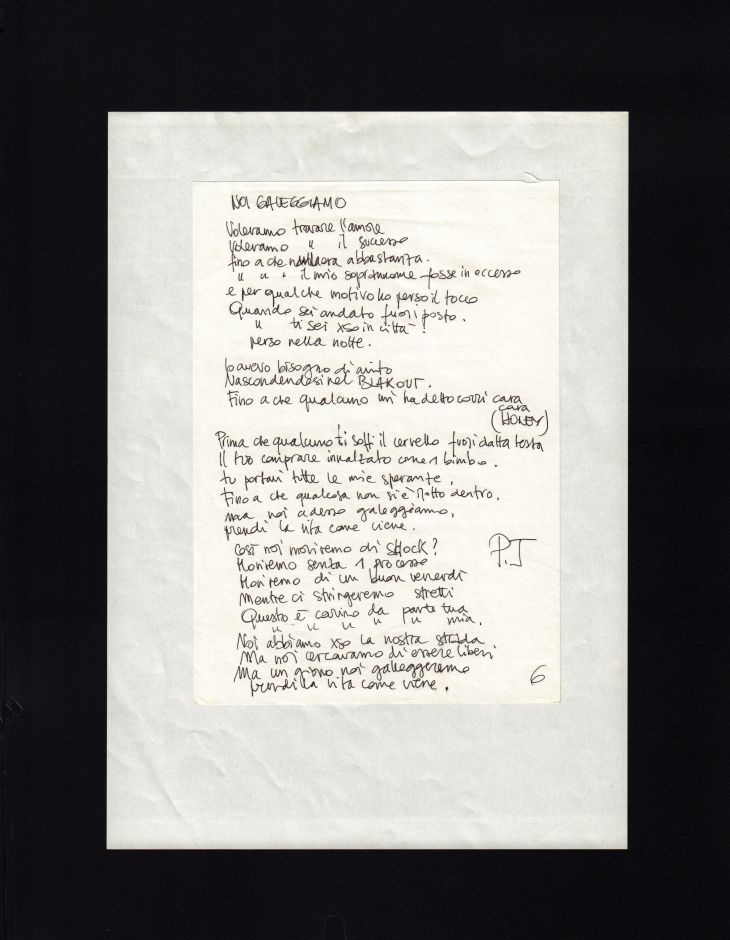 NOI GALEGGIAMO
Volevamo trovare l'amore
Volevamo " il successo
fino a che abbastanza.
" " " il mio soprannome fosse in eccesso
e per qualche motivo ho perso il toco
Quando sei andato fuori posto.
" ti sei xso in città
perso nella notte.
Io avevo bisogno di aiuto
Nascondendosi nel BLAKOUT.
Fino a che qualcuno mi ha detto così cara
cara
(HONEY)
Prima che qualcuno ti soffi il cervello fuori dalla testa
Il tuo comprare innalzato come 1 bimbo.
tu portavi tutte le mie speranze,
Fino a che qualcosa non si è rotto dentro.
ma noi adesso galeggiamo,
prendi la vita come viene.
Così noi moriremo di SHOCK?
P.J
Moriremo senza 1 processo
Moriremo di un buon venerdì
Mentre ci stringeremo stretti
Questo è carino da parte tua
" " " " " mia.
Noi abbiamo xso la nostra strada
Ma noi cercavamo di essere liberi
Ma un giorno noi galleggeremo
prendi la vita come viene.
6